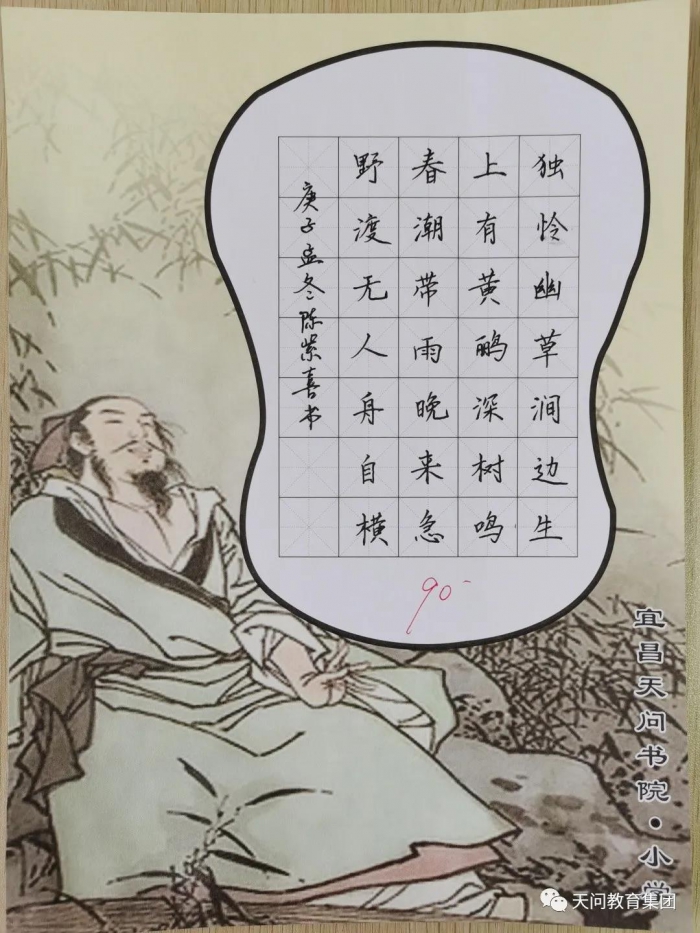 独怜幽草涧边生
上有黄鹂深树鸣
春潮带雨晚来急
野渡无人舟自横
庚子孟冬陈紫喜书
90
宜昌天问书院·小学
天问教育集团